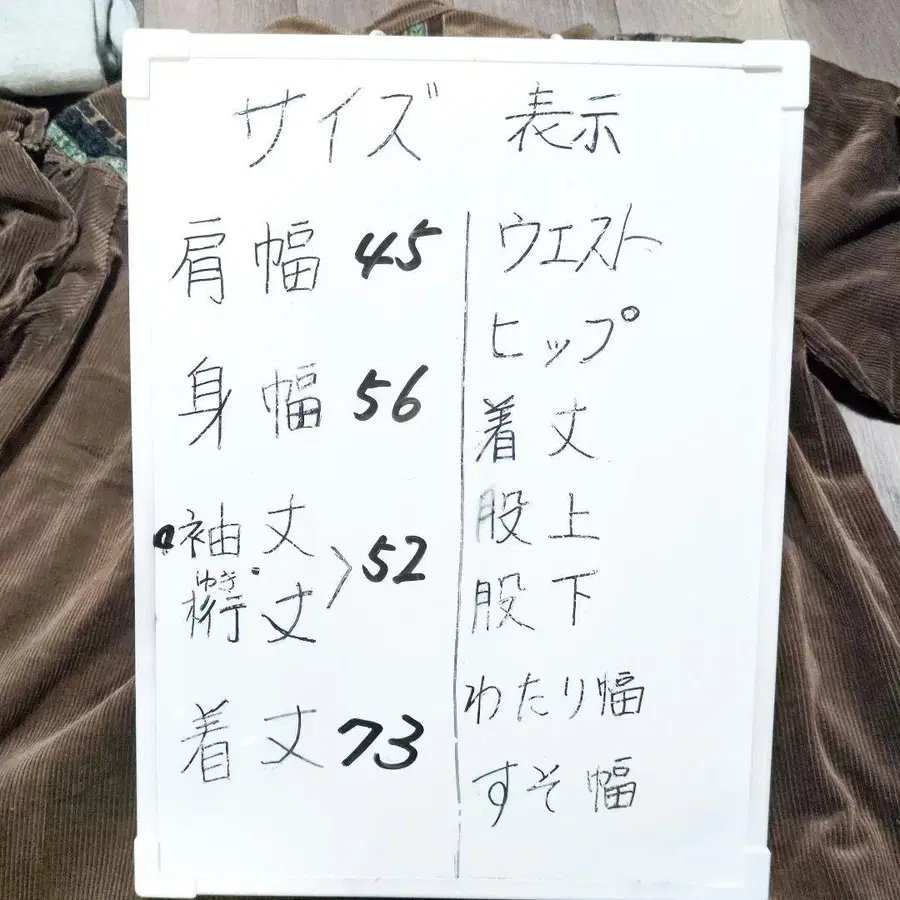 サイズ 表示
肩幅 45
身幅 56
袖丈
ゆき
裄丈
52
着丈 73
ウエスト
ヒップ
着丈
股上
股下
わたり幅
すそ幅